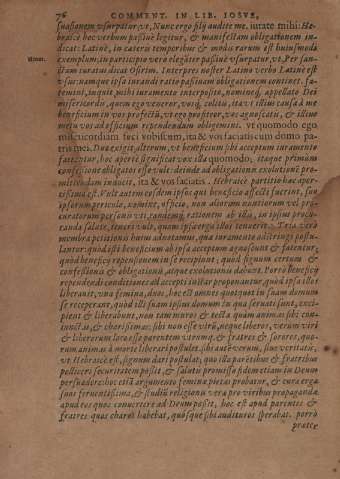 76 COMMENT. IN LIB. IOSUE,
suasionem vsurpatur, vt, Nunc ergo filij audite me, iurate mihi: He-
braicè hoc verbum passiuè legitur, & manifestam obligationem in
dicat: Latinè, in cæteris temporibus & modis rarum est huiusmodi
exemplum, in participio verò eleganter passiuè vsurpatur, vt, Per san-
ctam iuratus dicat Osirim. Interpres noster Latino verbo Latinè est
vsus: namque ipsa iurandi ratio passiuam obligationem continet. fa-
temini, inquit, mihi iuramento interposito, nomineq; appellato Dei
misericordis, quem ego veneror, vosq; colitis, ita vt illius causa à me
beneficium in vos profectũ, vt ego profiteor, vos agnoscatis, & illius
metu vos ad officium rependendum obligemini. vt quomodo ego
misericordiam feci vobiscum, ita & vos faciatis cum domo pa-
tris mei. Duo exigit alterum, vt beneficium sibi acceptum iuramento
fateantur, hoc apertè significat vox illa quomodo, itaque primum
confessione obligatos esse vult: deinde ad obligationem exolutionẽ pro-
mittendam inducit, ita & vos faciatis. Hebraicè partitio hæc aper-
tissima est. Vult autem eosdem ipsos qui beneficio affecti fuerint, suo
ipsorum periculo, nomine, officio, non aliorum nuntiorum vel pro-
curatorum personis vti, tandemq; rationem ab illis, in ipsius procu-
randa salute, teneri vult, quam ipsa ergo illos tenuerit. Tria verò
membra petitionis huius adnotamus, quæ iuramento adstringi postu-
lantur: quòd isti beneficium ab ipsa acceptum agnoscunt & fatentur,
quòd beneficij repensionem in se recipiunt, quòd signum certum &
confessionis & obligationis, atque exolutionis dabunt. Porrò beneficij
rependendi conditiones ab acceptis instar proponuntur, quòd ipsa illos
liberauit, vna femina, duos, hoc est omnes quotquot in suam domum
se receperant, quòd isti suam ipsius domum in qua seruati sunt, exci-
pient & liberabunt, non tam muros & tecta quàm animas sibi con-
iunctas, & charissimas: sibi non esse virũ, neque liberos, verùm viri
& liberorum loco esse parentem vtrumq; & fratres & sorores, quo-
rum animas à morte liberari postulet. sibi autẽ verum, siue veritatis,
vt Hebraicè est, signum dari postulat, quo illa parẽtibus & fratribus
polliceri securitatem possit, & salutis promissæ fidem etiam in Deum
persuadere: hoc etiã argumento feminæ pietas probatur, & cura erga
suos feruentissima, & studiũ religionis veræ pro viribus propagandæ
apud eos quos conuertere ad Deum possit, hoc est apud parentes &
fratres quos charos habebat, quósque sibi auditores sperabat. porrò
præte